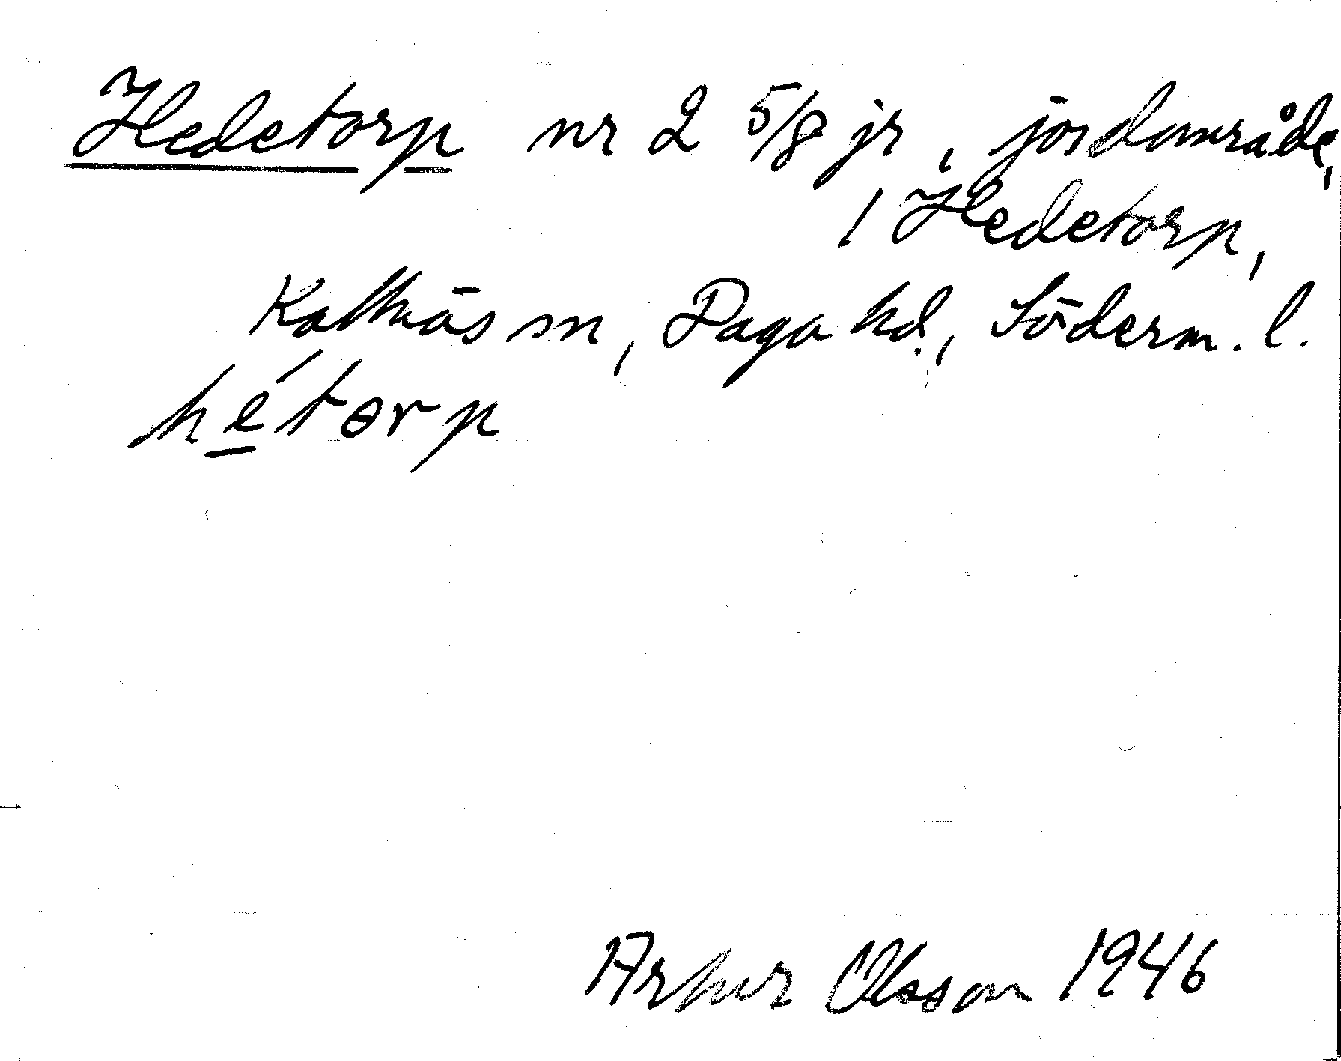 Hedetorp nr 2 5/8 jr, jordområde,
1 Hedetorp,
Kattnäs sn, Daga hd., Söderm. l.
hétorp
Arthur Olsson 1946